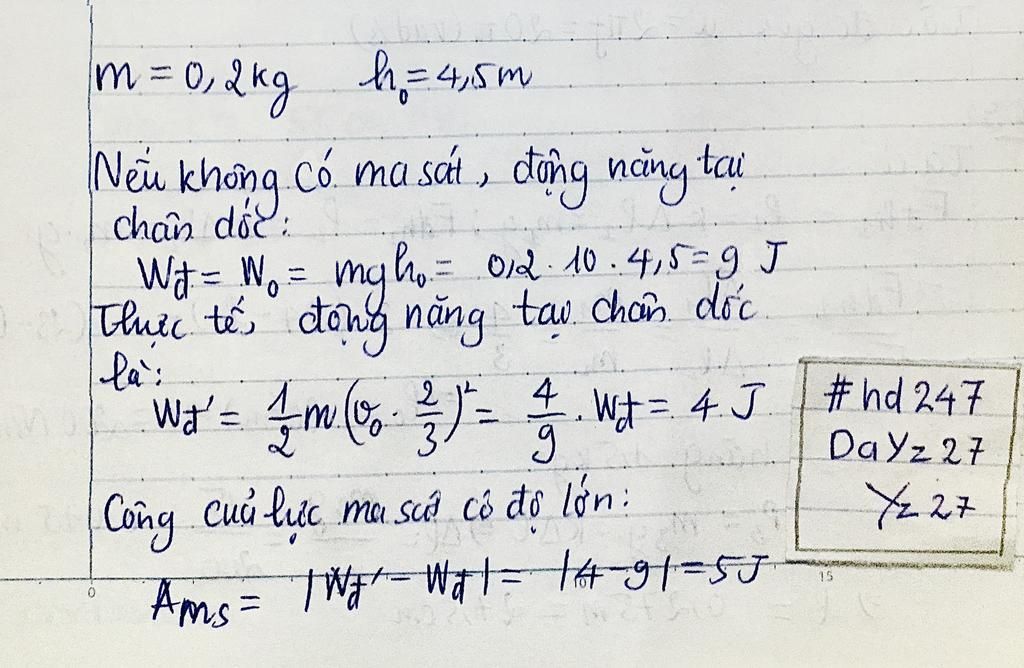 m = 0,2kg h₀ = 4,5m
Nếu không có ma sát, động năng tại
chân dốc:
Wđ = W₀ = mgh₀ = 0,2 . 10 . 4,5 = 9 J
Thực tế, động năng tại chân dốc
là:
Wđ' = 1/2 m (v₀ . 2/3)² = 4/9 . Wđ = 4 J
Công của lực ma sát có độ lớn:
Ams = |Wđ' - Wđ| = |4 - 9| = 5J
#hd247
DaYz27
Yz27
0
10
15